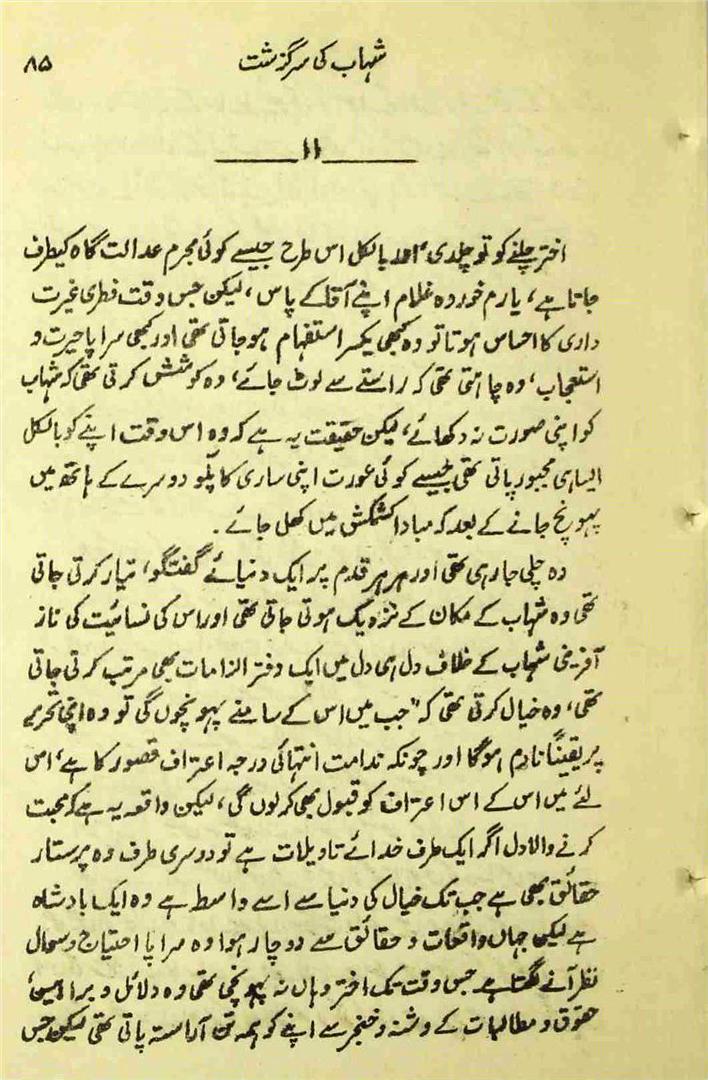 شہاب کی سرگزشت ۸۵
۱۱
اختر چلنے کو تو چلدی، اور بالکل اس طرح جیسے کوئی مجرم عدالت گاہ کیطرف
جاتا ہے، یا رم خوردہ غلام اپنے آقا کے پاس، لیکن جس وقت فطری غیرت
داری کا احساس ہوتا تو وہ کبھی یکسر استفہام ہوجاتی تھی اور کبھی سراپا حیرت و
استعجاب، وہ چاہتی تھی کہ راستے سے لوٹ جائے، وہ کوشش کرتی تھی کہ شہاب
کو اپنی صورت نہ دکھائے، لیکن حقیقت یہ ہے کہ وہ اس وقت اپنے کو بالکل
ایسا ہی مجبور پاتی تھی جیسے کوئی عورت اپنی ساری کا پلّو دوسرے کے ہاتھ میں
پہونچ جانے کے بعد کہ مبادا کشمکش میں کھل جائے۔
وہ چلی جا رہی تھی اور ہر ہر قدم پر ایک دنیائے گفتگو، تیار کرتی جاتی
تھی وہ شہاب کے مکان کے نزدیک ہوتی جاتی تھی اور اس کی نسائیت کی ناز
آفرینی شہاب کے خلاف دل ہی دل میں ایک دفتر الزامات بھی مرتب کرتی جاتی
تھی، وہ خیال کرتی تھی کہ "جب میں اس کے سامنے پہونچوں گی تو وہ اپنی تحریر
پر یقیناً نادم ہوگا اور چونکہ ندامت انتہائی درجہ اعتراف قصور کا ہے، اس
لئے میں اس کے اس اعتراف کو قبول بھی کرلوں گی، لیکن واقعہ یہ ہے کہ محبت
کرنے والا دل اگر ایک طرف خدائے تاویلات ہے تو دوسری طرف وہ پرستار
حقائق بھی ہے جب تک خیال کی دنیا سے اسے واسطہ ہے وہ ایک بادشاہ
ہے لیکن جہاں واقعات و حقائق سے دوچار ہوا وہ سراپا احتیاج و سوال
نظر آنے لگتا ہے جس وقت تک اختر وہاں نہ پہونچی تھی وہ دلائل و براہین،
حقوق و مطالبات کے دشنہ و خنجر سے اپنے کو ہمہ تن آراستہ پاتی تھی لیکن جس